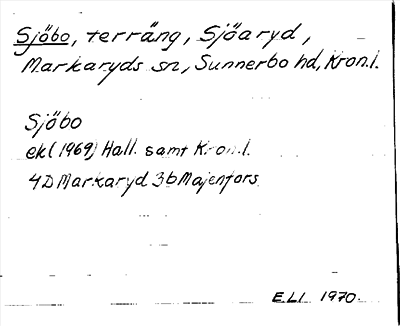 Sjöbo, terräng, Sjöaryd,
Markaryds sn, Sunnerbo hd, Kron.l.
Sjöbo
ek (1969) Hall. samt Kron.l.
4D Markaryd 3b Majenfors
E.L.I 1970.